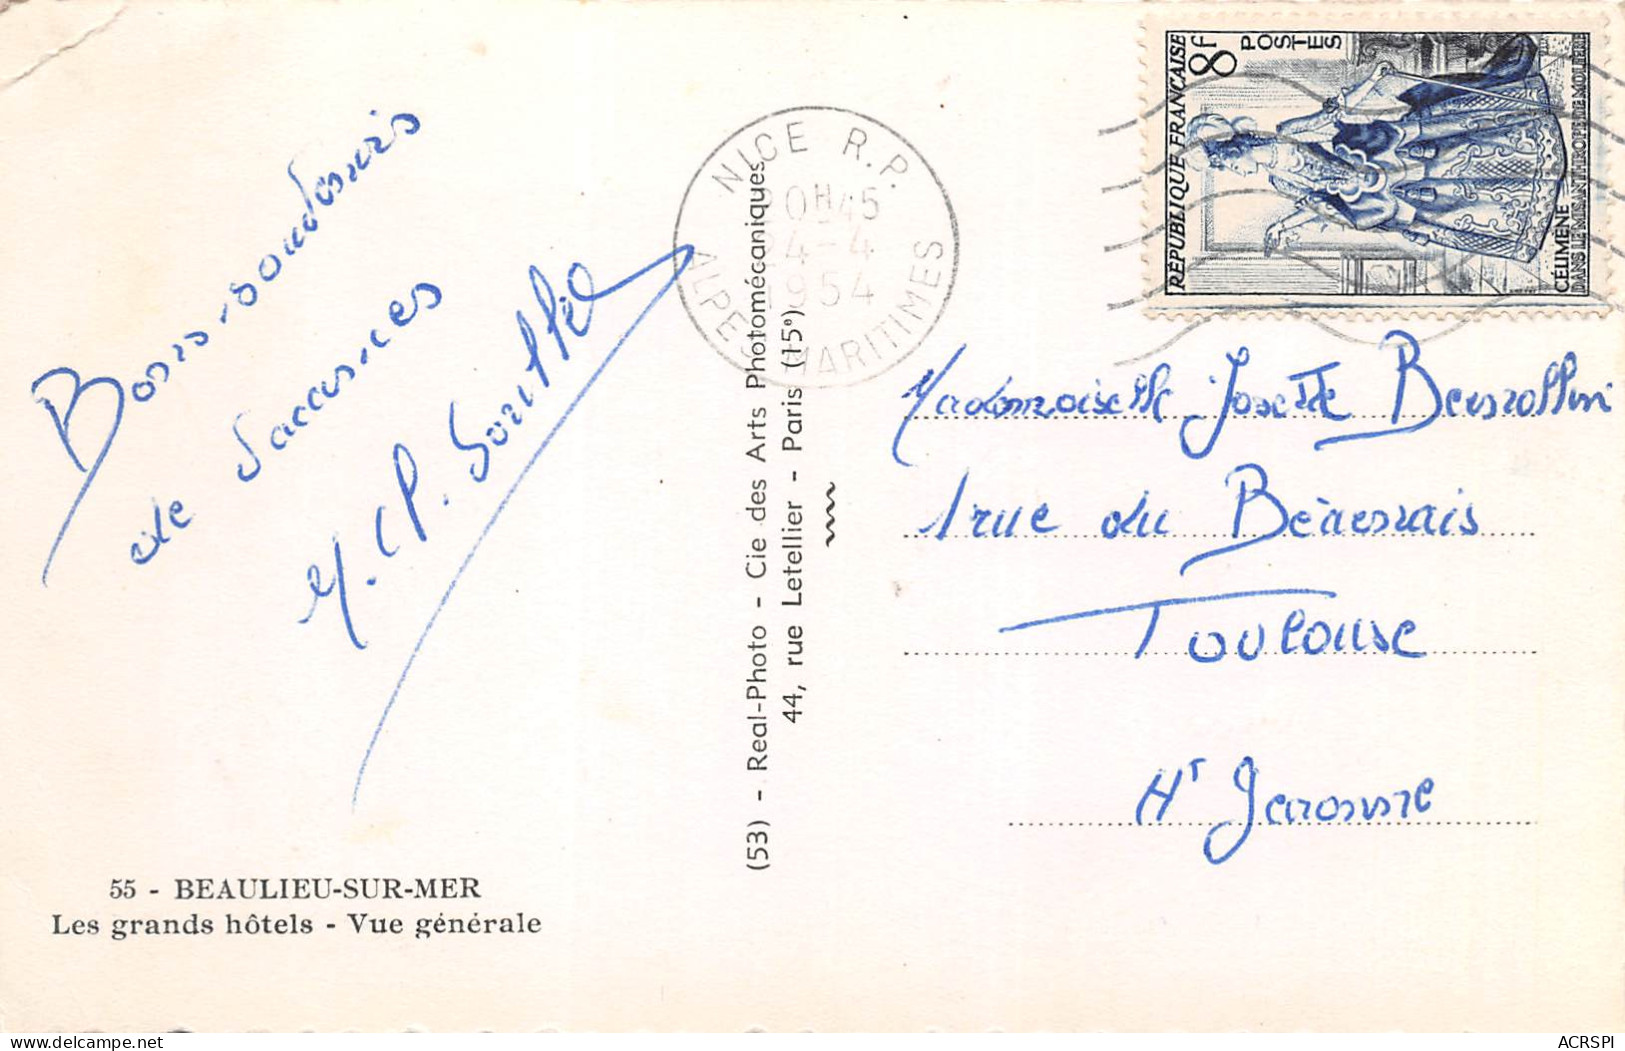 Bons souvenirs
de vacances
55 - BEAULIEU-SUR-MER
Les grands hôtels - Vue générale
(53) - Real-Photo - Cie des Arts Photomécaniques
44, rue Letellier - Paris (15e)
NICE R.P.
20H45
24-4
1954
ALPES MARITIMES
RÉPUBLIQUE FRANÇAISE
8F
POSTES
CÉLIMÈNE
DANS LE MISANTHROPE DE MOLIÈRE
Mademoiselle Josette
1 rue du Béarnais
Toulouse
Hte Garonne
ACRSPI